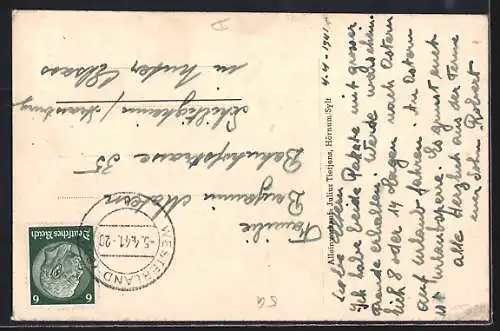 4.4.1941
Liebe Eltern
Ich habe beide Pakete mit grosser
Freude erhalten. Werde wahrschein-
lich 8 oder 14 Tagen nach Ostern
auf Urlaub fahren. An Ostern
ist Urlaubsperre. Es grüsst euch
alle Herzlich aus der Ferne
euer Sohn Robert
Alleinverkauf: Julius Tierjens, Hörnum/Sylt
Familie
Benjamin
Bahnhofstrasse 35
Schiltigheim / Strassburg
im Unter Elsass
WESTERLAND
-5.4.41.-20
Deutsches Reich
6 6